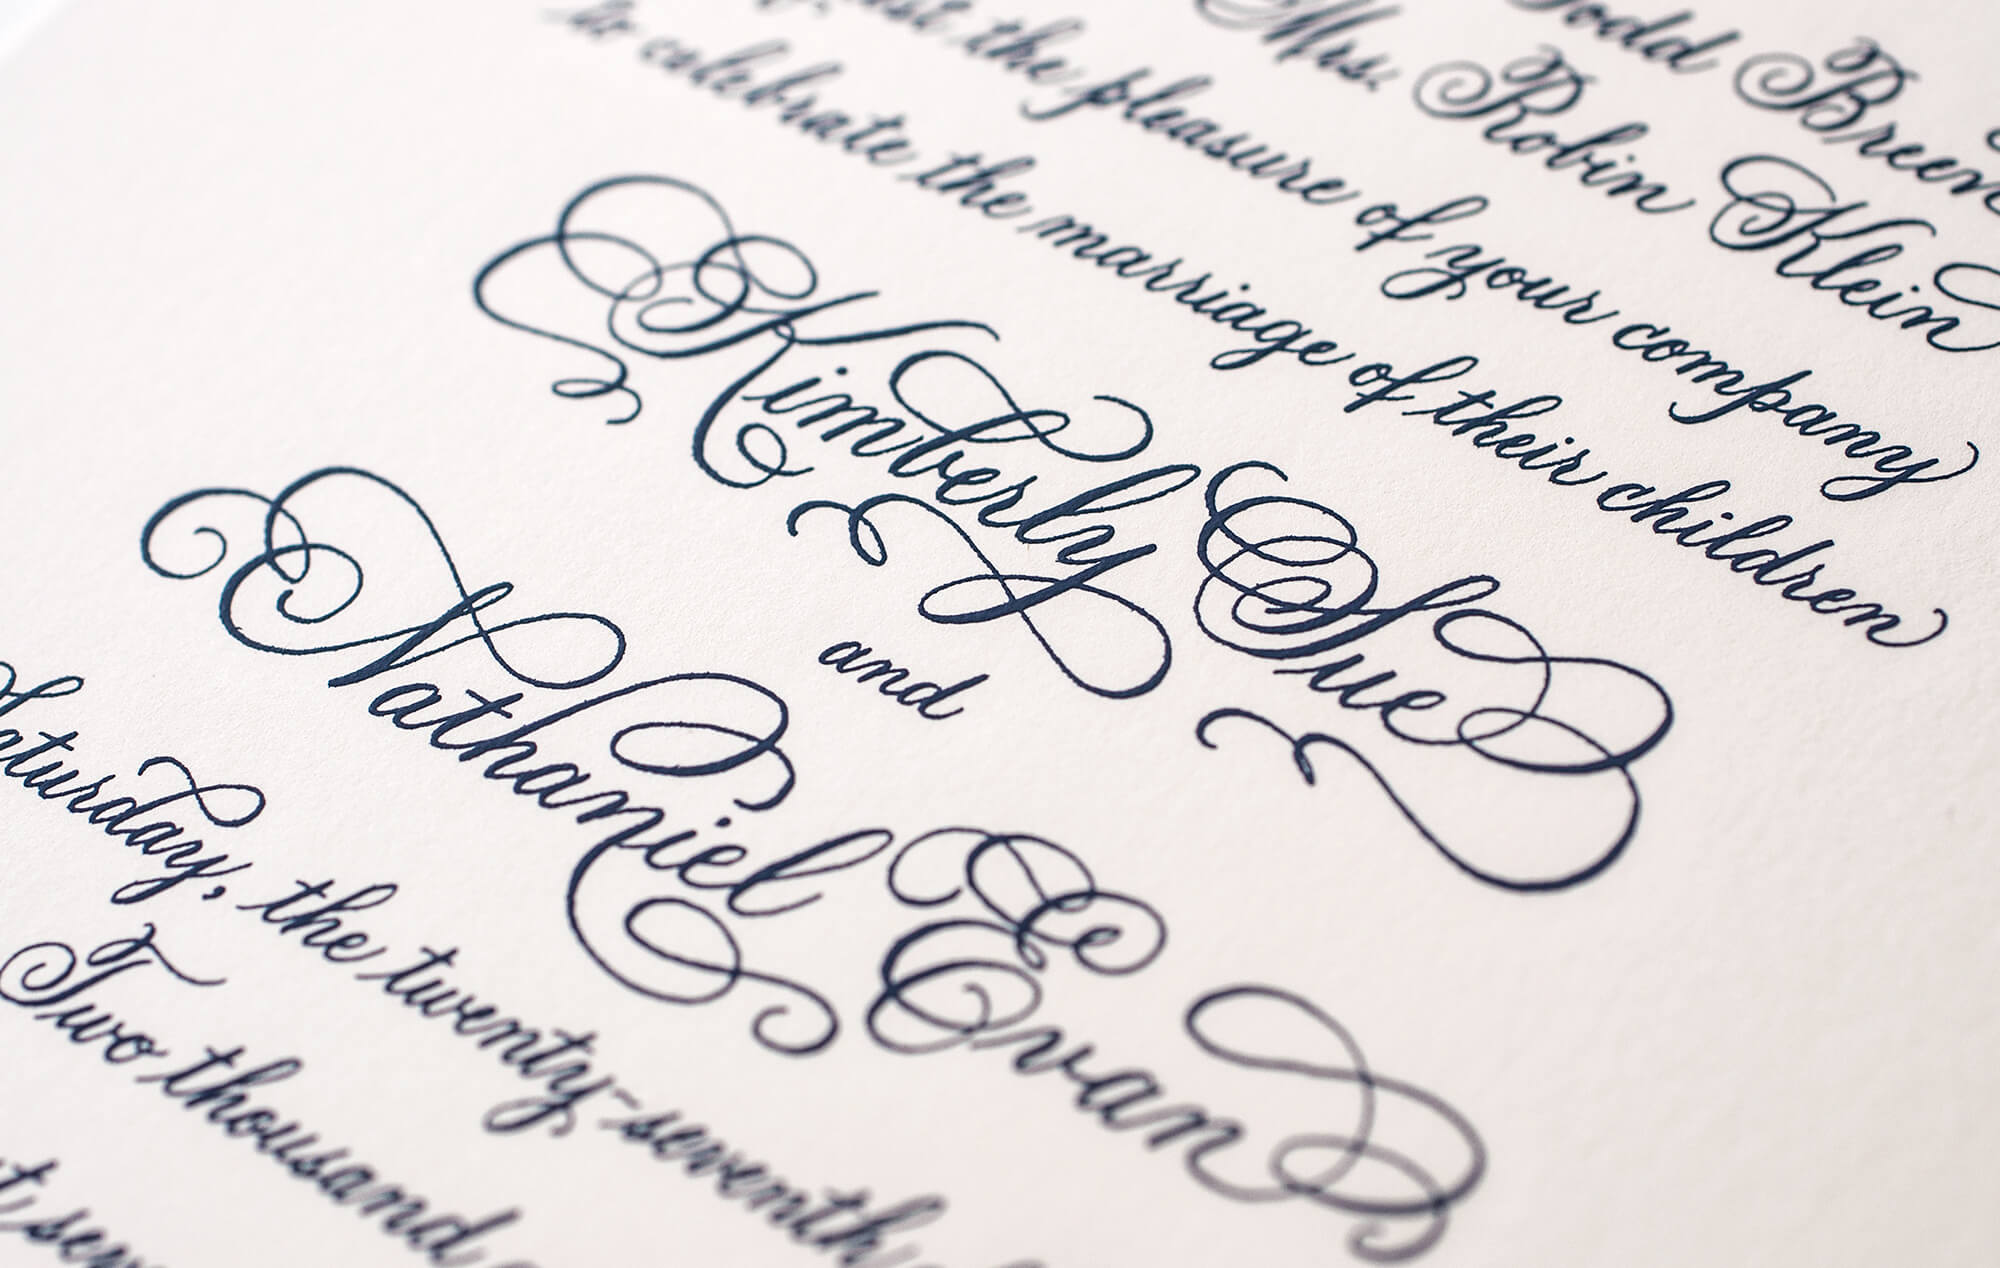 Todd Breen
Mrs. Robin Klein
the pleasure of your company
to celebrate the marriage of their children
Kimberly Sue
and
Nathaniel Evan
Saturday, the twenty-seventh
Two thousand